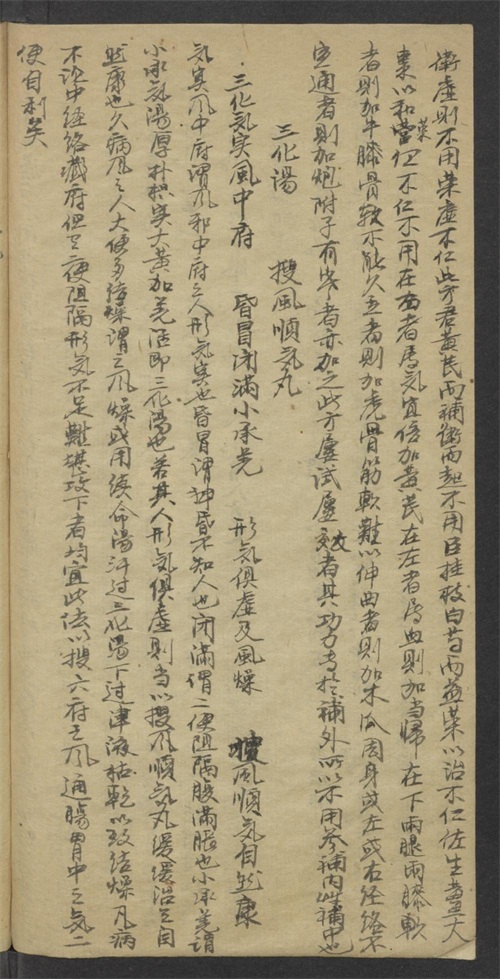 衛虛則不用榮虛不仁此方君黃芪而補衛而起不用臣桂枝白芍而益榮以治不仁佐生薑大
棗以和營榮但不仁不用在右者爲氣宜倍加黃芪在左者爲血則加当歸在下兩腿兩膝軟
者則加牛膝骨軟不能久立者則加虎骨筋軟難以伸曲者則加木瓜周身或左或右经络不
宣通者則加炮附子有寒者亦加之此方屢試屢效者其功力专於補外所以不用參補内草補中也
三化湯 搜風順気丸
三化気实風中府 昏冒闭滿小承羌 形気俱虛及風燥 搜風順気自然康
気实風中府謂風邪中府之人形気实也昏冒謂神昏不知人也闭滿謂二便阻隔腹滿脹也小承羌謂
小承気湯厚朴枳实大黃加羌活即三化湯也若其人形気俱虛則当以搜風順気丸缓缓治之自
然康也久病風之人大便多结燥謂之風燥或用续命湯汗过三化湯下过津液枯乾以致结燥凡病
不论中经络藏府但二便阻隔形気不足難堪攻下者均宜此法以搜六府之風通腸胃中之気二
便自利矣